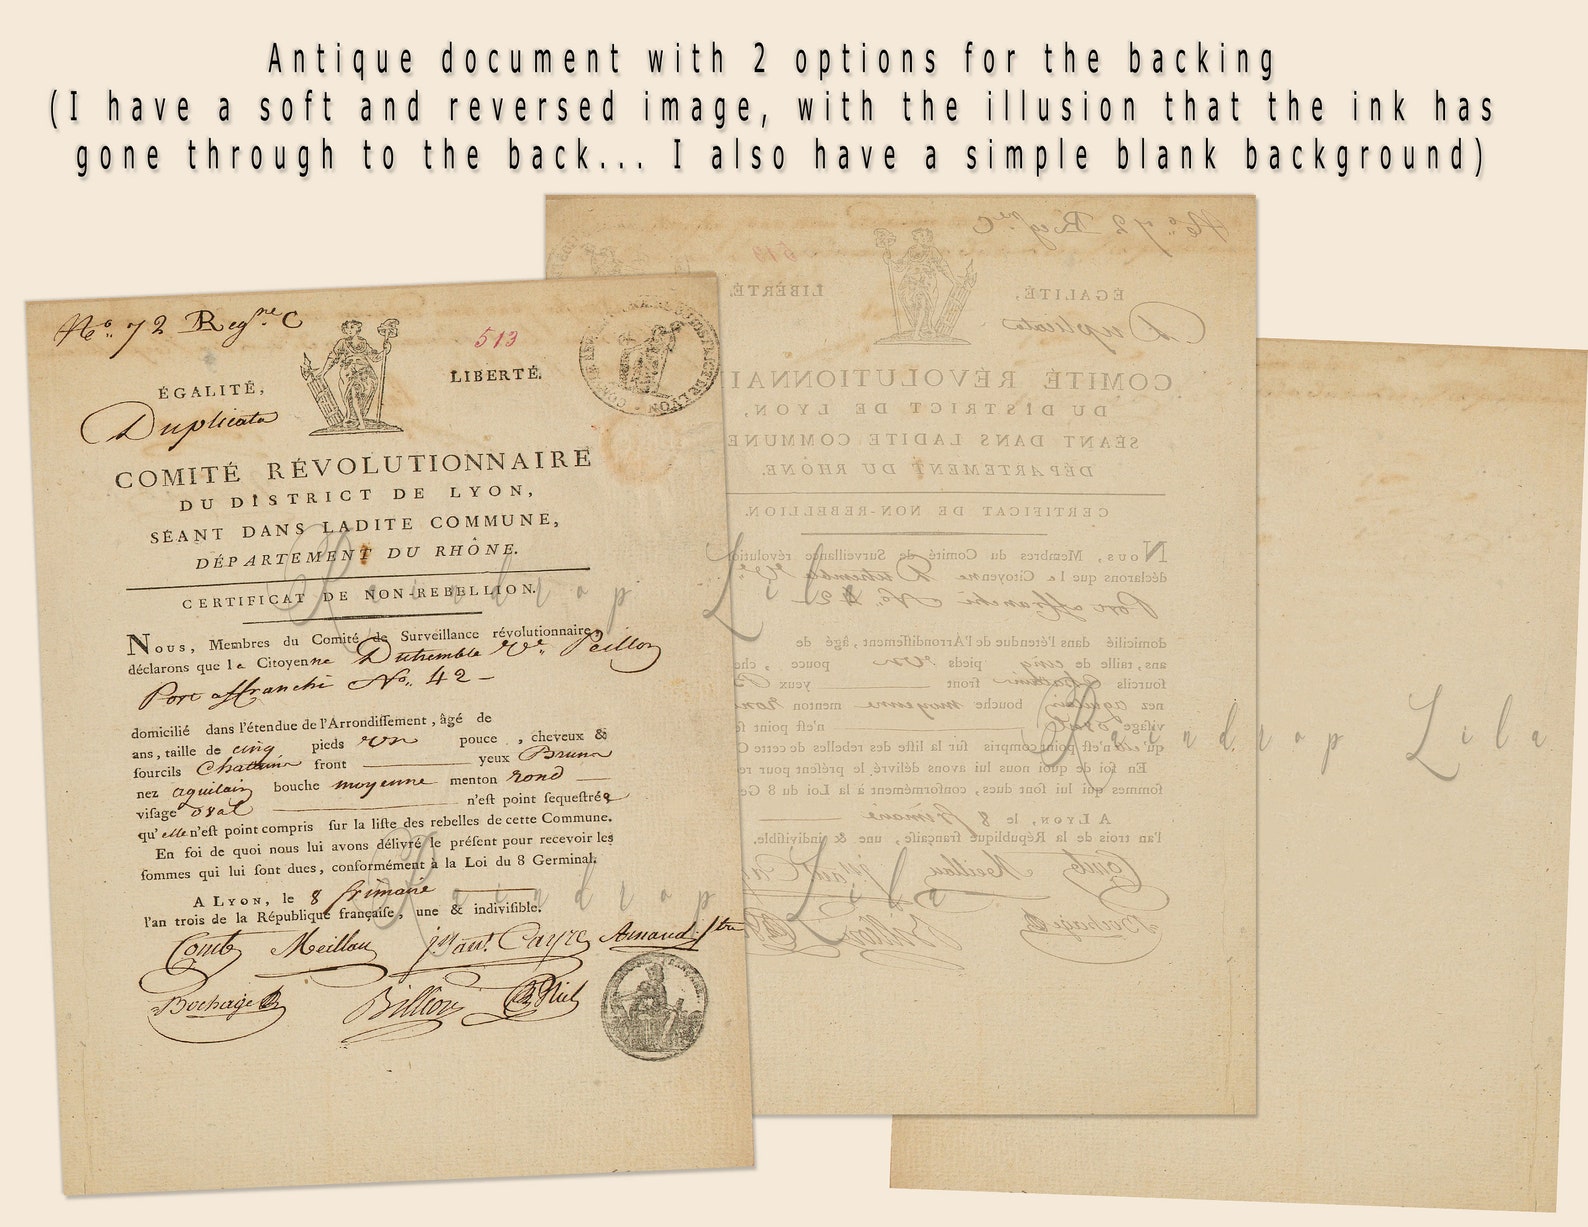 Antique document with 2 options for the backing
(I have a soft and reversed image, with the illusion that the ink has
gone through to the back... I also have a simple blank background)
No. 72 Regre C
513
ÉGALITÉ,
LIBERTÉ.
Duplicata
COMITÉ RÉVOLUTIONNAIRE
DU DISTRICT DE LYON,
SÉANT DANS LADITE COMMUNE,
DÉPARTEMENT DU RHÔNE.
CERTIFICAT DE NON-REBELLION.
Nous, Membres du Comité de Surveillance révolutionnaire,
déclarons que le Citoyenne Dutremble Ve. Peillon
Port affranchi No. 42 -
domicilié dans l'étendue de l'Arrondissement, âgé de
ans, taille de cinq pieds un pouce, cheveux &
sourcils Chatain front yeux Bruns
nez aquilain bouche moyenne menton rond
visage oval n'est point sequestrée
qu'elle n'est point compris sur la liste des rebelles de cette Commune.
En foi de quoi nous lui avons délivré le présent pour recevoir les
sommes qui lui sont dues, conformément à la Loi du 8 Germinal.
A LYON, le 8 frimaire
l'an trois de la République française, une & indivisible.
Comb Meillan Cayre Arnaud
Bochage Billion
Raindrop Lila
Raindrop Lila
Raindrop Lila